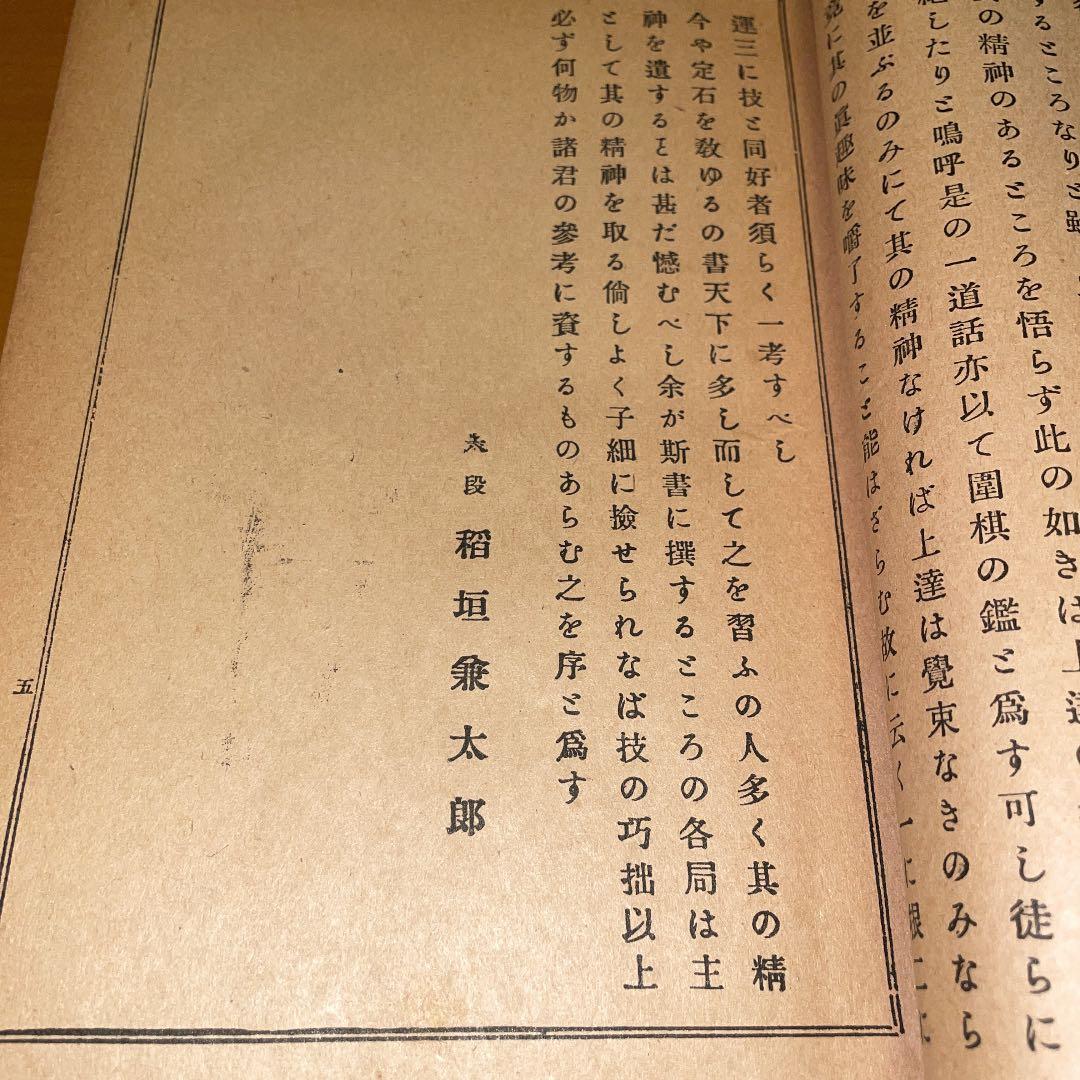 るところなりと雖
の精神のあるところを悟らず此の如きは上達の
絶したりと鳴呼是の一道話亦以て圍棋の鑑と爲す可し徒らに
を並ぶるのみにて其の精神なければ上達は覺束なきのみなら
に其の眞趣味を嚼了すること能はざらむ故に云く一に
運三に技と同好者須らく一考すべし
今や定石を敎ゆるの書天下に多し而して之を習ふの人多く其の精
神を遺するとは甚だ憾むべし余が斯書に撰するところの各局は主
として其の精神を取る倘しよく子細に撿せられなば技の巧拙以上
必ず何物か諸君の參考に資するものあらむ之を序と爲す
段 稻垣兼太郎
五